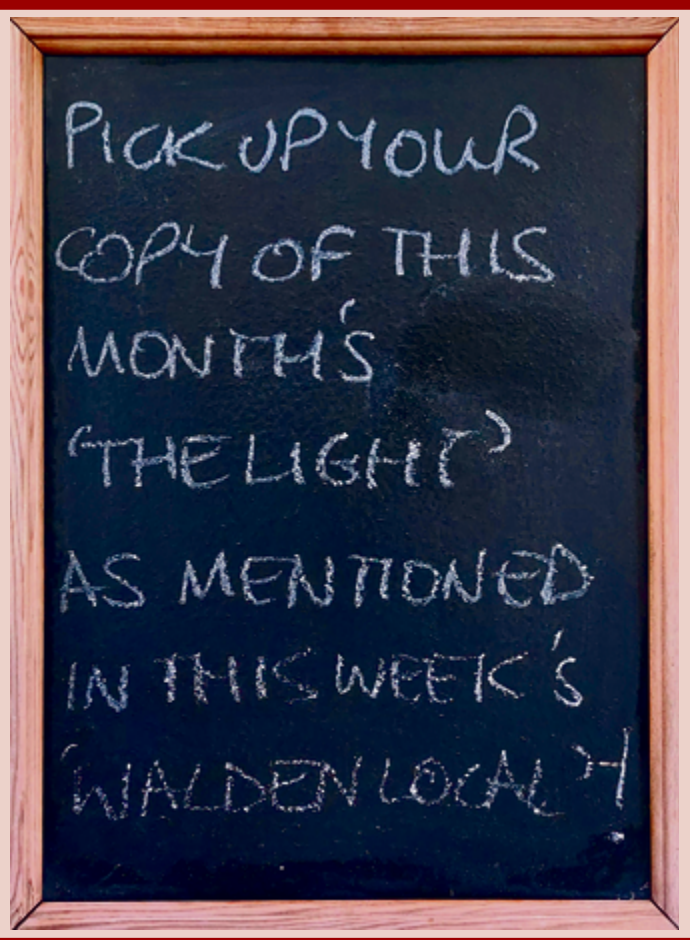 PICK UP YOUR
COPY OF THIS
MONTH'S
'THE LIGHT'
AS MENTIONED
IN THIS WEEK'S
'WALDEN LOCAL'!